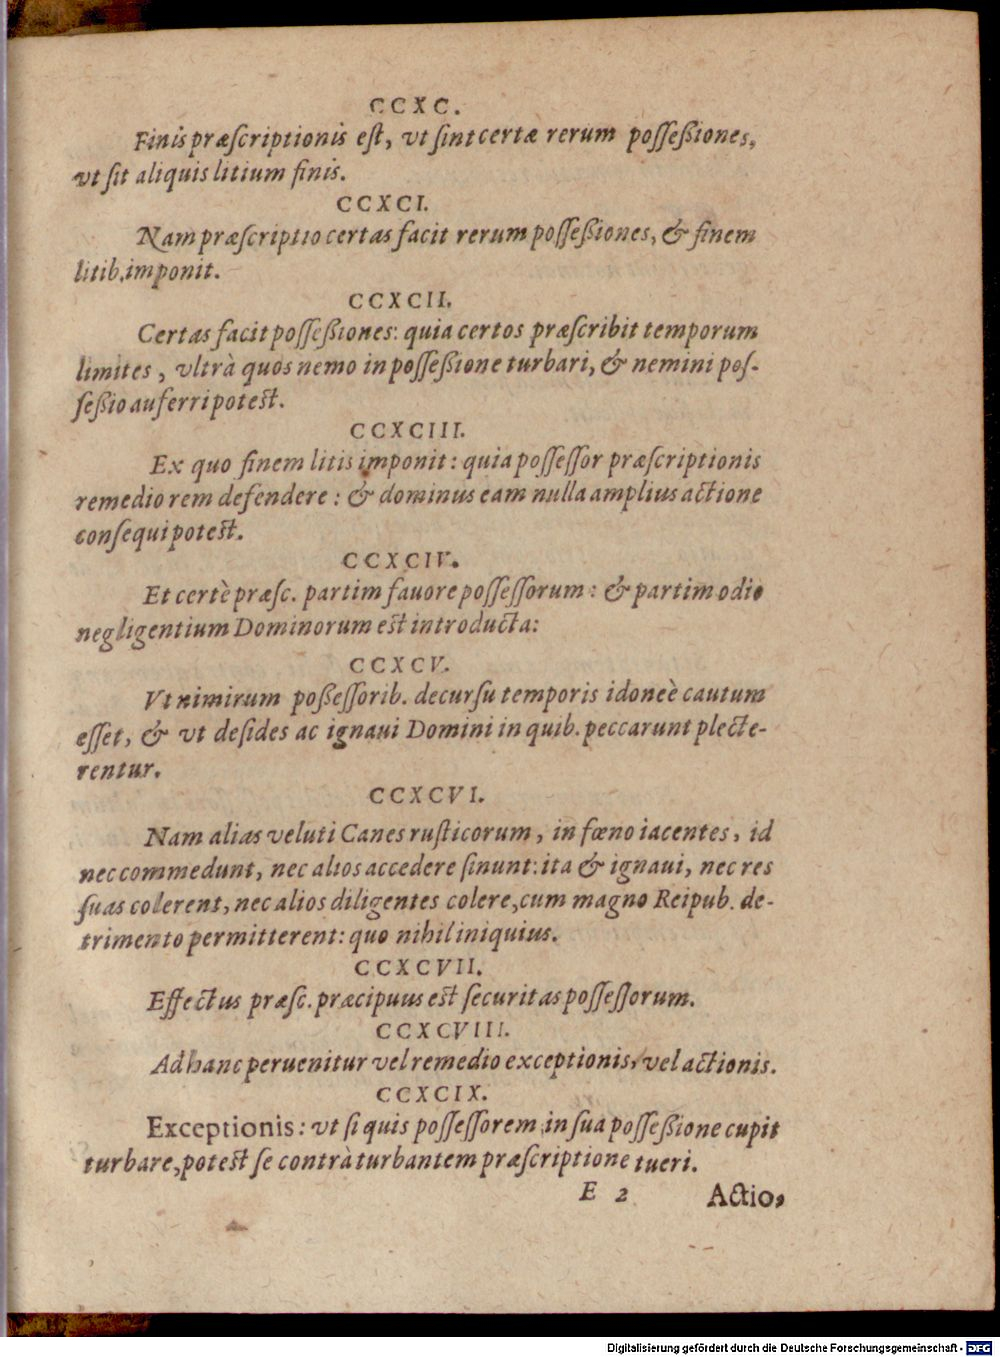 CCXC.
Finis præſcriptionis eſt, vt ſint certæ rerum poſſeßiones,
vt ſit aliquis litium finis.
CCXCI.
Nam præſcriptio certas facit rerum poſſeßiones, & finem
litib. imponit.
CCXCII.
Certas facit poſſeßiones: quia certos præſcribit temporum
limites, vltrà quos nemo in poſſeßione turbari, & nemini poſ-
ſeßio auferri poteſt.
CCXCIII.
Ex quo finem litis imponit: quia poſſeſſor præſcriptionis
remedio rem defendere: & dominus eam nulla amplius actione
conſequi poteſt.
CCXCIV.
Et certè præſc. partim fauore poſſeſſorum: & partim odio
negligentium Dominorum eſt introducta:
CCXCV.
Vt nimirum poßeſſorib. decurſu temporis idoneè cautum
eſſet, & vt deſides ac ignaui Domini in quib. peccarunt plecte-
rentur.
CCXCVI.
Nam alias veluti Canes ruſticorum, in fœno iacentes, id
nec commedunt, nec alios accedere ſinunt: ita & ignaui, nec res
ſuas colerent, nec alios diligentes colere, cum magno Reipub. de-
trimento permitterent: quo nihil iniquius.
CCXCVII.
Effectus præſc. præcipuus eſt ſecuritas poſſeſſorum.
CCXCVIII.
Ad hanc peruenitur vel remedio exceptionis, vel actionis.
CCXCIX.
Exceptionis: vt ſi quis poſſeſſorem in ſua poſſeßione cupit
turbare, poteſt ſe contrà turbantem præſcriptione tueri.
E 2 Actio,
Digitalisierung gefördert durch die Deutsche Forschungsgemeinschaft - DFG